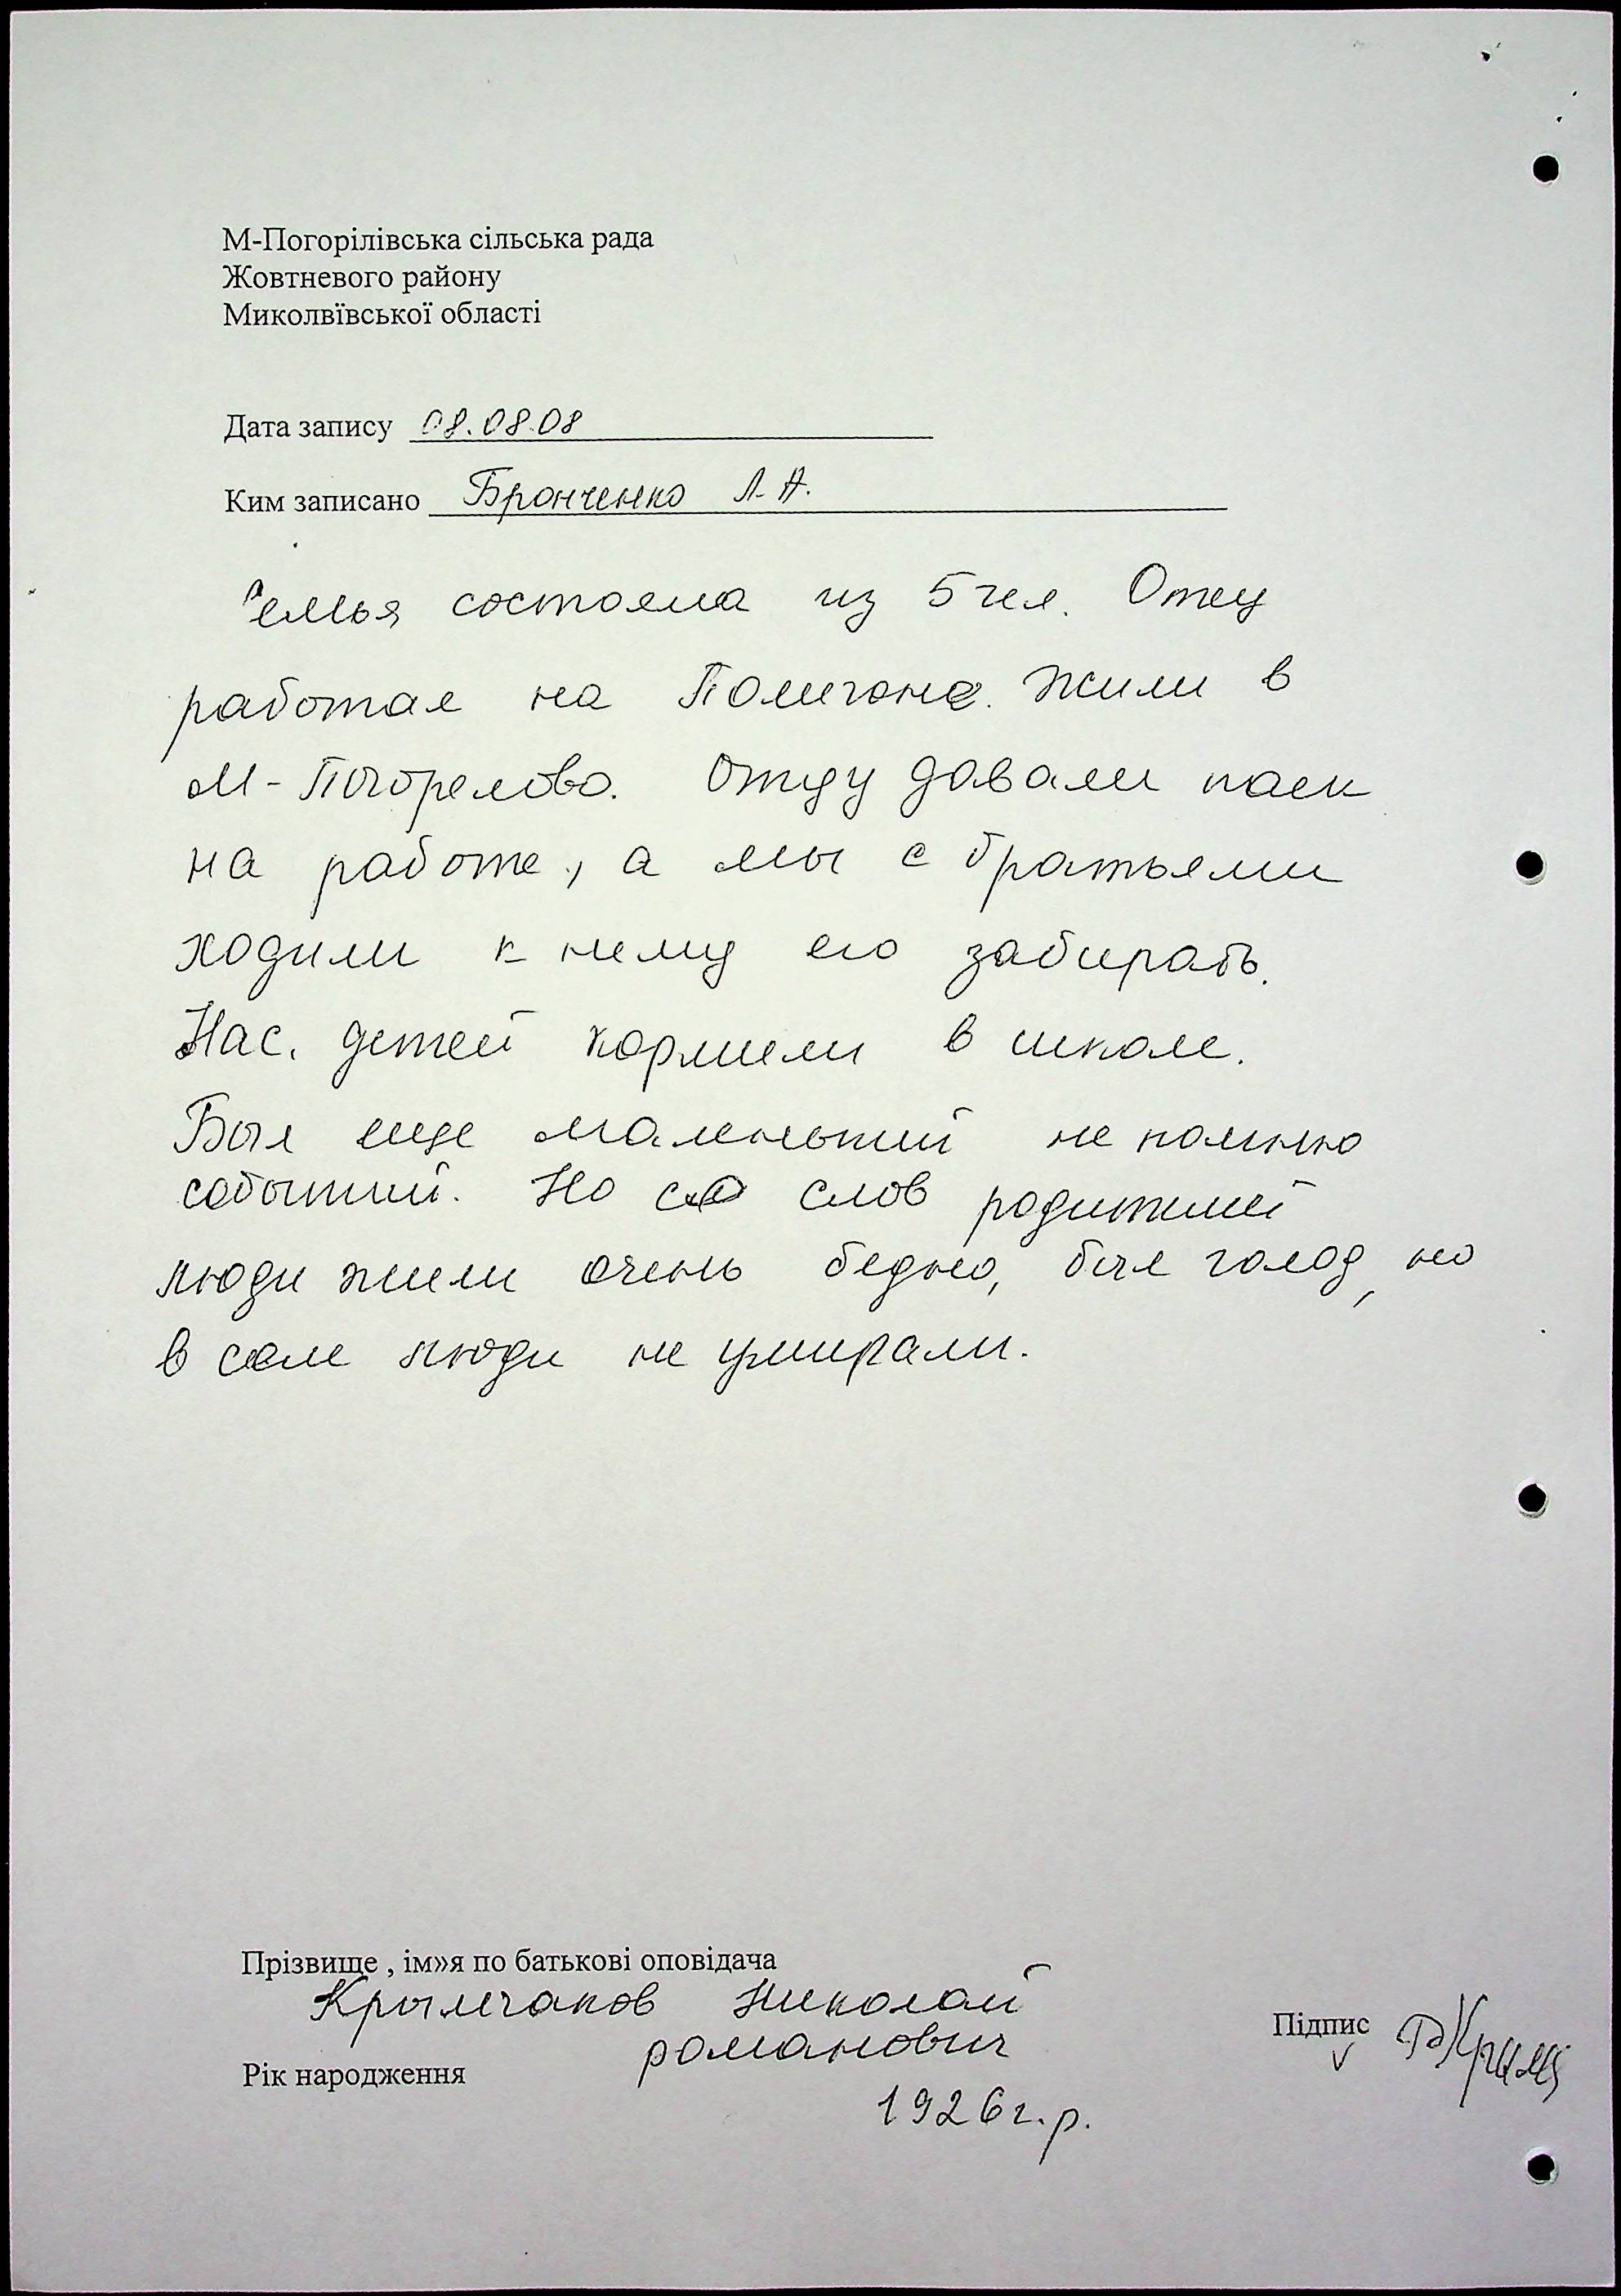 М-Погорілівська сільська рада
Жовтневого району
Миколвївської області
Дата запису 08.08.08
Ким записано Бронченко Л.А.
Семья состояла из 5 чел. Отец
работал на Полигоне. Жили в
М-Погорелово. Отцу давали паек
на работе, а мы с братьями
ходили к нему его забирать.
Нас, детей кормили в школе.
Был еще маленький не помню
событий. Но со слов родителей
люди жили очень бедно, был голод, но
в селе люди не умирали.
Прізвище , ім»я по батькові оповідача
Крымчаков Николай
романович
Рік народження
1926 г.р.
Підпис